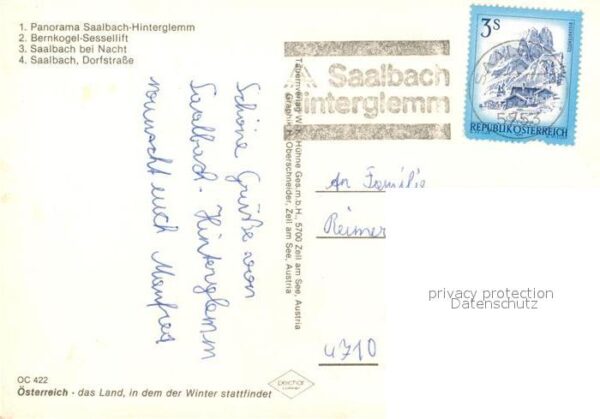 1. Panorama Saalbach-Hinterglemm
2. Bernkogel-Sessellift
3. Saalbach bei Nacht
4. Saalbach, Dorfstraße
Saalbach
Hinterglemm
3S
REPUBLIK ÖSTERREICH
5753
Schöne Grüße von
Saalbach-Hinterglemm
wünscht euch Manfred
Hühne Ges.m.b.H., 5700 Zell am See, Austria
Graphik H. Oberschneider, Zell am See, Austria
An Familie
Reimer
4710
privacy protection
Datenschutz
OC 422
Österreich - das Land, in dem der Winter stattfindet